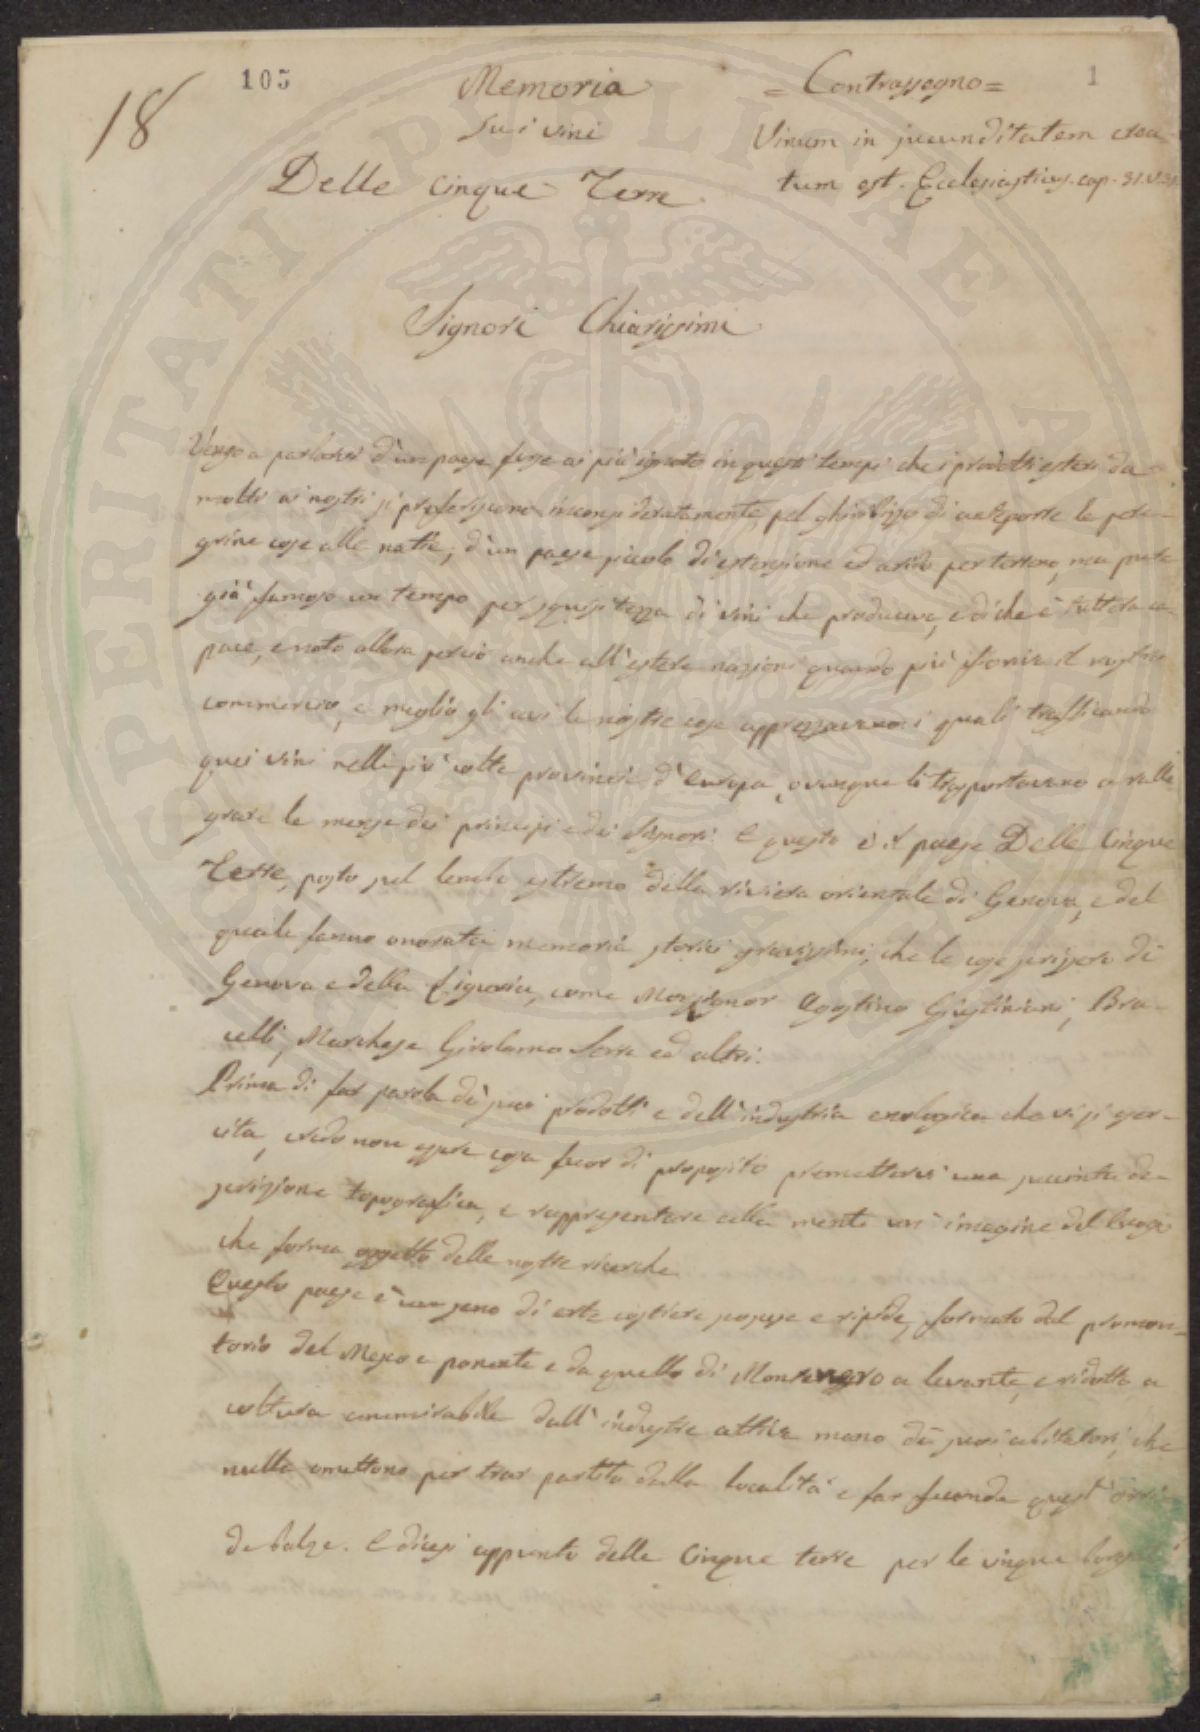 105
1
18
Memoria
Sui vini
Delle Cinque Terre
= Contrassegno =
Vinum in jucunditatem crea-
tum est. Ecclesiasticus. cap. 31. v. 35.
Signori Chiarissimi
Vengo a parlarvi d'un paese forse ai più ignoto in questi tempi che i prodotti esteri da
molti ai nostri si preferiscono inconsideratamente, pel ghiribizzo di anteporre le pere-
grine cose alle natie; d'un paese piccolo di estensione ed arido per terreno, ma pure
già famoso un tempo per squisitezza di vini che produceva, e di che è tuttora ca-
pace, e noto allora perciò anche all'estere nazioni quando più fioriva il nostro
commercio, e meglio gli avi le nostre cose apprezzavano: i quali trafficando
quei vini nelle più colte provincie d'Europa, ovunque li trasportavano a ralle-
grare le mense dei principi e dei Signori. E questo è il paese Delle Cinque
Terre, posto sul lembo estremo della riviera orientale di Genova, e del
quale fanno onorata memoria storici gravissimi, che le cose scrissero di
Genova e della Liguria, come Monsignor Agostino Giustiniani, Bra-
celli, Marchese Girolamo Serra ed altri.
Prima di far parola dei suoi prodotti e dell'industria enologica che vi si eser-
cita, credo non essere cosa fuor di proposito premettervi una succinta de-
scrizione topografica, e rappresentare alla mente un'imagine del luogo
che forma oggetto delle nostre ricerche.
Questo paese è un seno di erte costiere scoscese e ripide, formato dal promon-
torio del Mesco a ponente e da quello di Montenegro a levante, e ridotta a
coltura ammirabile dall'industre attiva mano dei suoi abitatori, che
nulla omettono per trar partito dalla località e far feconde quest'orri-
de balze. E dicesi appunto delle Cinque terre per le cinque borgate
SPERITATI PUBLICAE